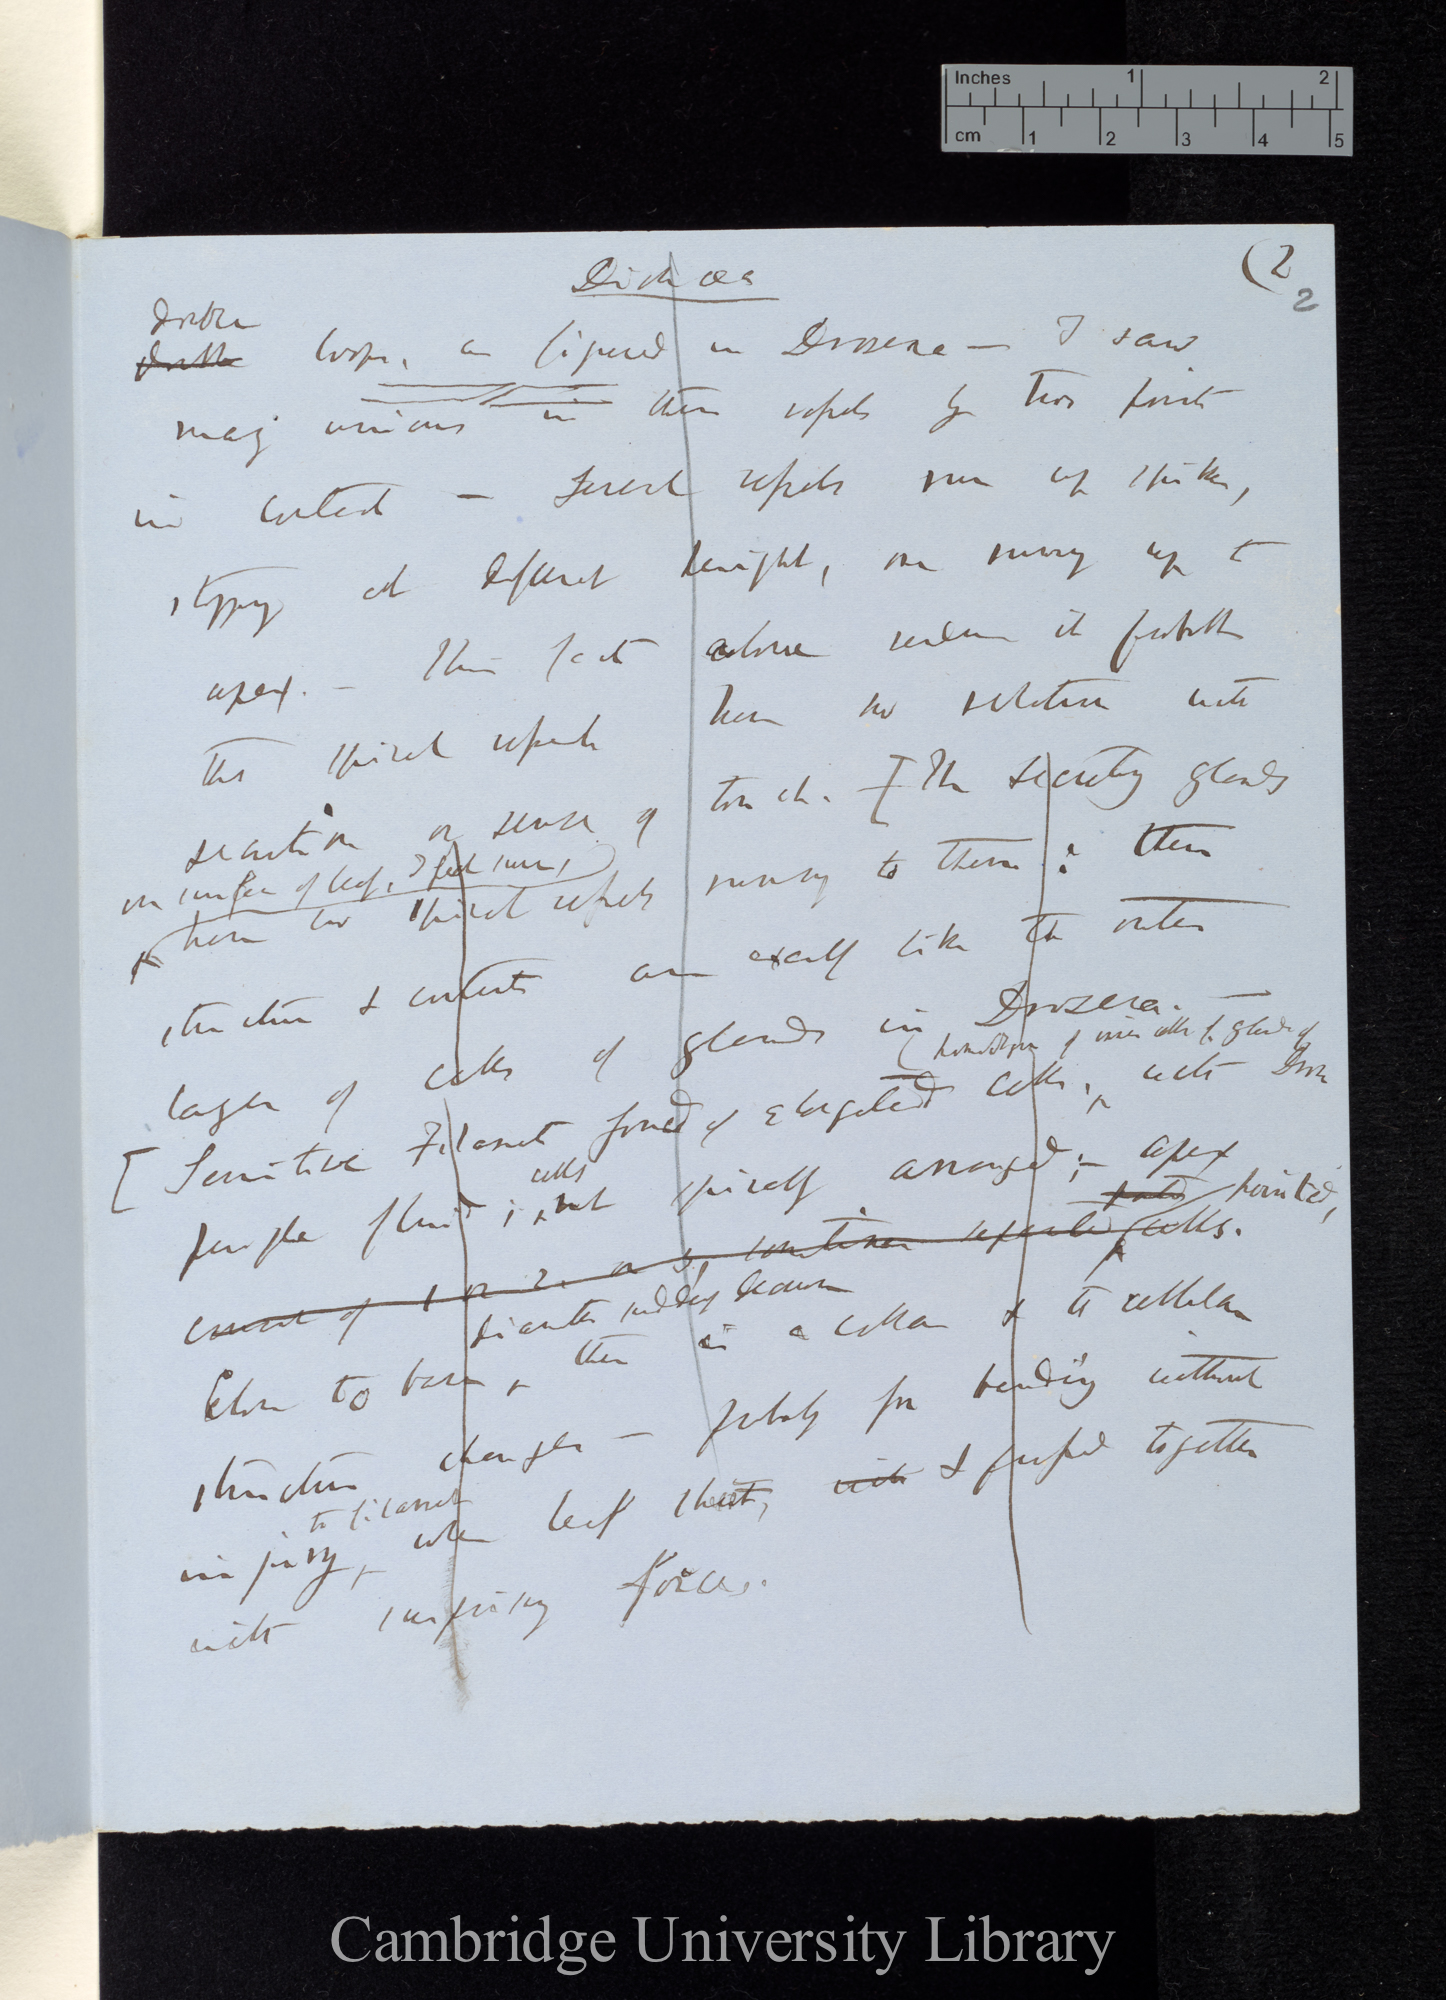 Inches 1 2
cm 1 2 3 4 5
Dionæa
(2
2
double
double loops, as figured in Drosera — I saw
many unions in these vessels by two points
in contact — Several vessels run up spikes,
stopping at different height, one running up to
apex. — This fact alone renders it probable
the spiral vessels have no relation with
secretion or sense of touch. [The secreting glands
on surface of leaf, I feel sure,
have no spiral vessels running to them: their
structure & contents are exactly like the outer
layer of cells of glands in Drosera. —
(homologous of inner cells of glands of
[Sensitive Filaments formed of elongated cells, with Dros
cells
purple fluid; not spirally arranged; — apex
pointed,
consist of 1 or 2. or 3, sometimes separate cells.
diameter suddenly decreases
Close to base, there is a collar & the cellular
structure changes — probably for bending without
to filament
injury, when leaf shuts, with & pressed together
with surprising force.
Cambridge University Library